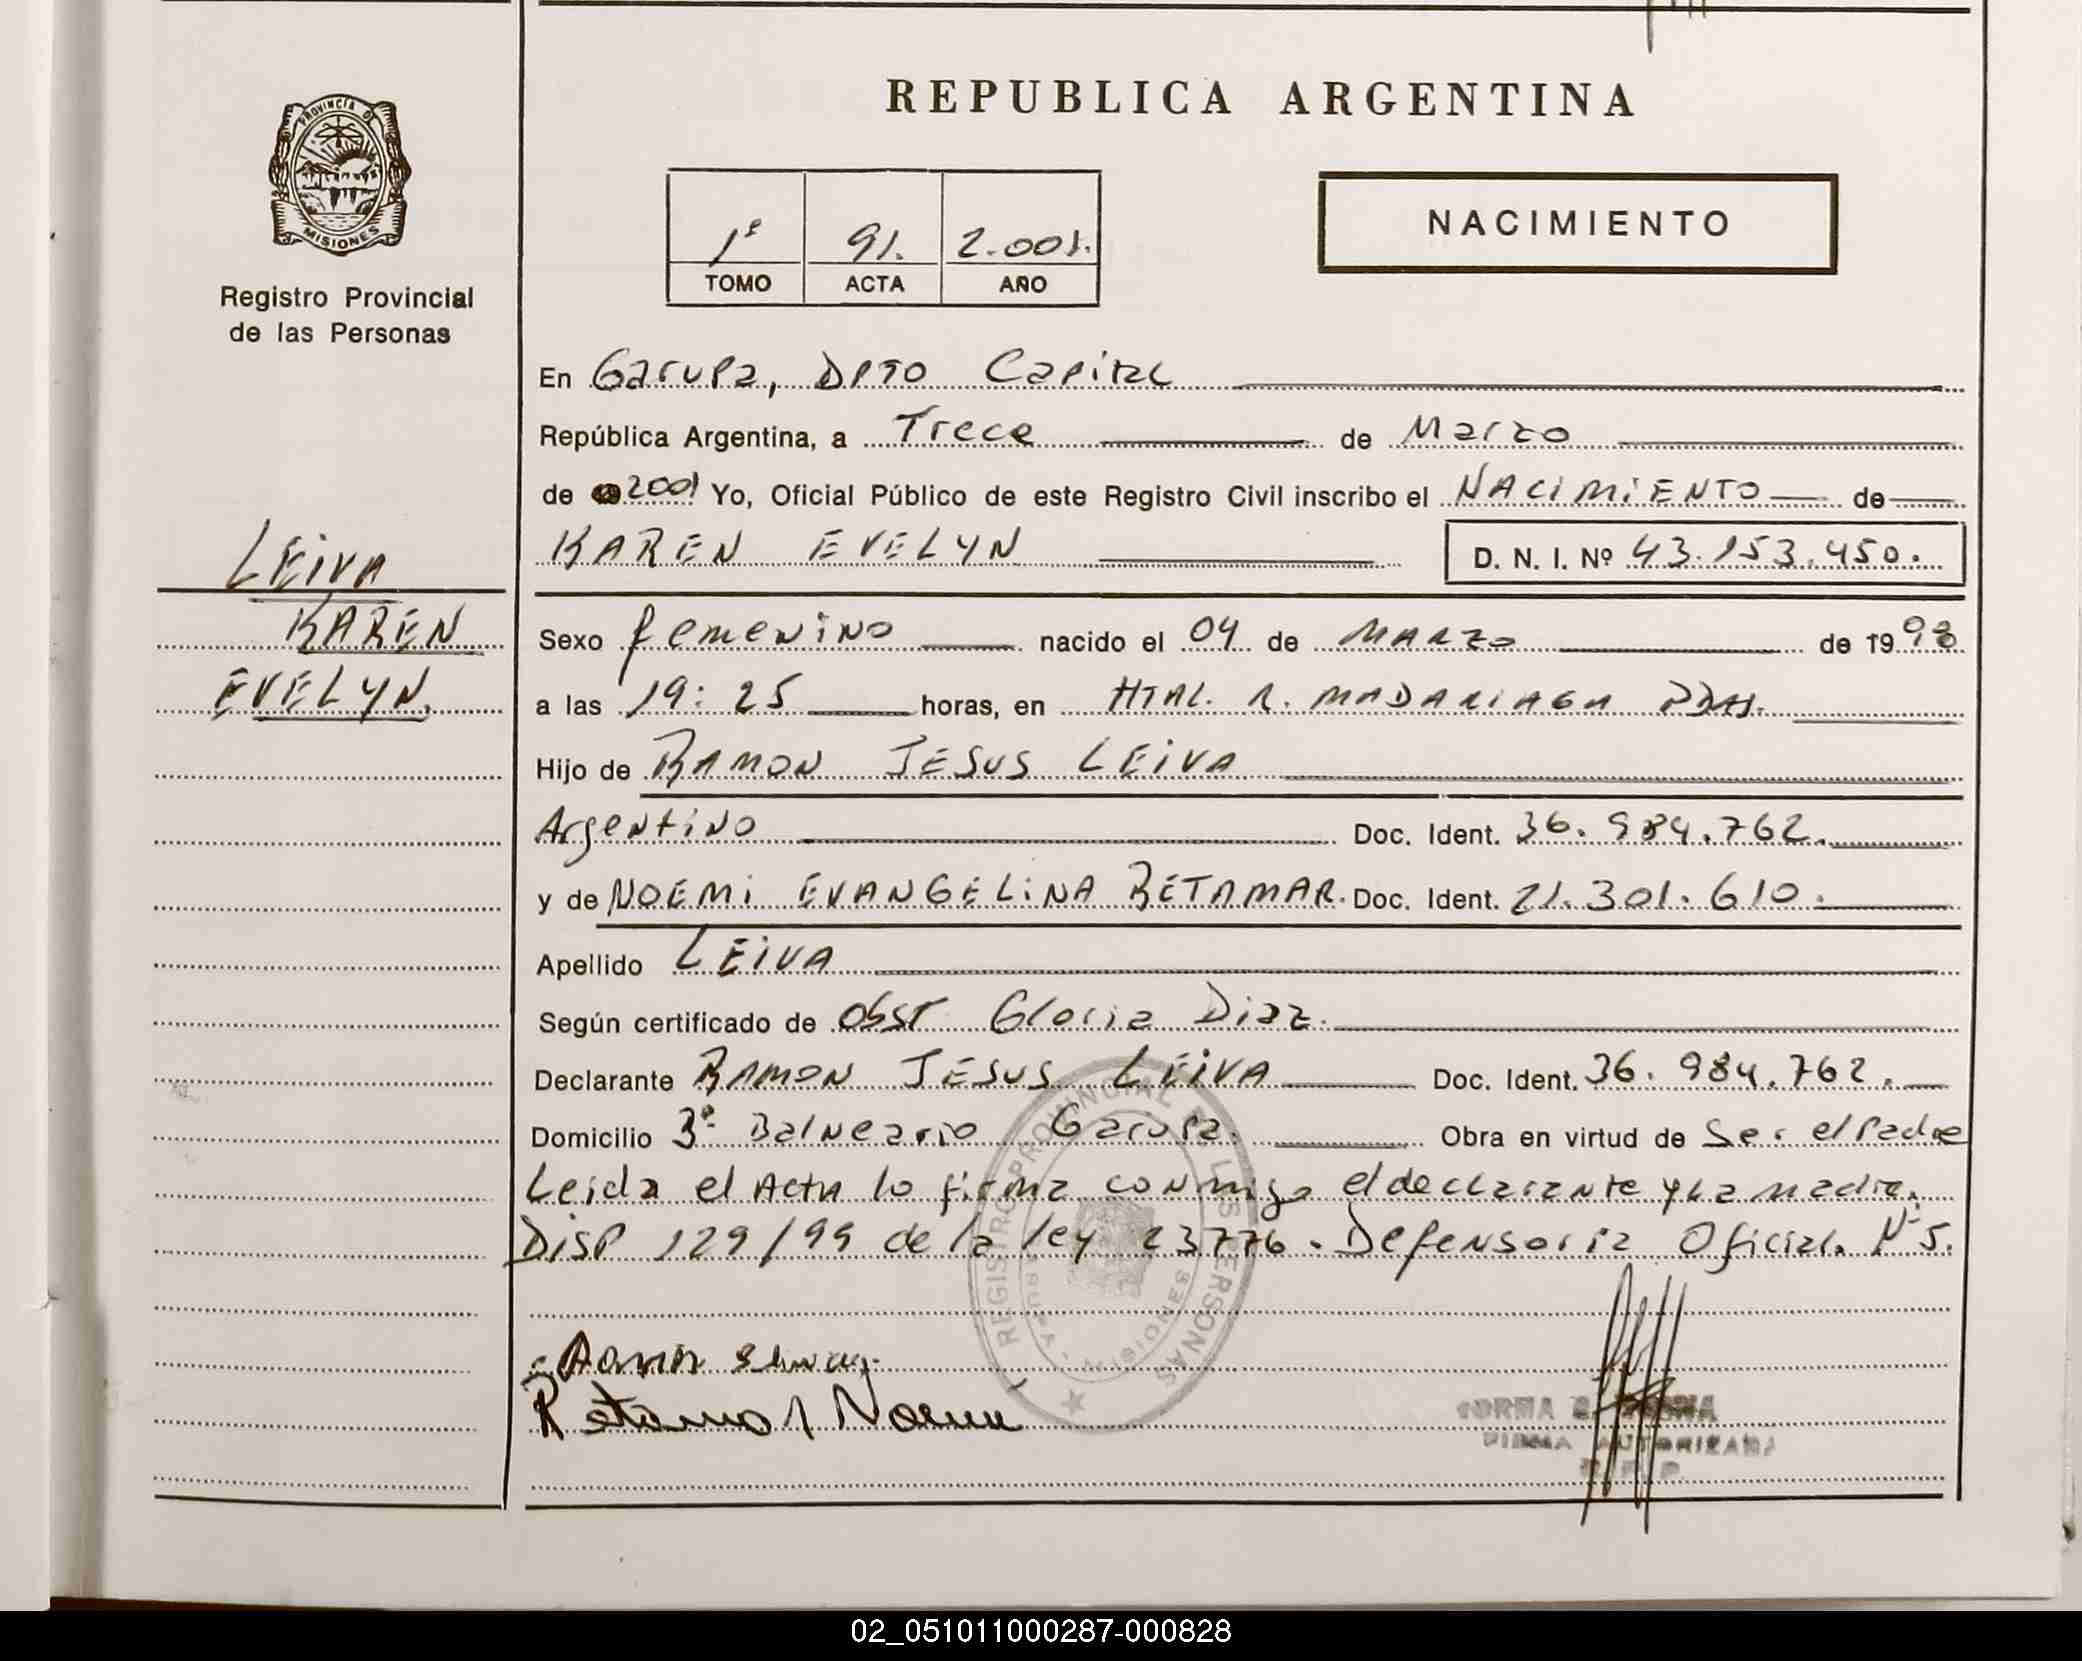 REPUBLICA ARGENTINA
PROVINCIA DE MISIONES
Registro Provincial
de las Personas
1º 91. 2.001.
TOMO ACTA AÑO
NACIMIENTO
En Garupa, DPTO Capital
República Argentina, a Trece de Marzo
de 2001 Yo, Oficial Público de este Registro Civil inscribo el NACIMIENTO de
KAREN EVELYN D. N. I. Nº 43.153.450.
LEIVA
KAREN
EVELYN.
Sexo femenino nacido el 04 de MARZO de 1998
a las 19:25 horas, en HTAL. R. MADARIAGA PDAS.
Hijo de RAMON JESUS LEIVA
Argentino Doc. Ident. 36.984.762.
y de NOEMI EVANGELINA RETAMAR. Doc. Ident. 21.301.610.
Apellido LEIVA
Según certificado de Obst Gloria Diaz.
Declarante RAMON JESUS LEIVA Doc. Ident. 36.984.762.
Domicilio 3º Balneario Garupa. Obra en virtud de Ser el Padre
Leida el Acta lo firma conmigo el declarante y La madre.
DISP 129/99 de la ley 23776. Defensoria Oficial. Nº 5.
REGISTRO PROVINCIAL DE LAS PERSONAS
MISIONES
Retamar Noemi
FIRMA AUTORIZADA
02_051011000287-000828